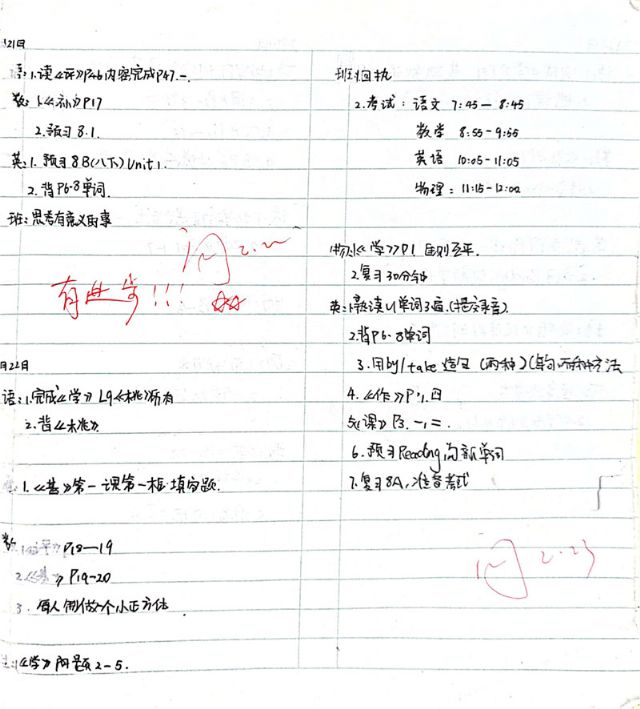 21日
语:1.读《评》P46内容完成P47.一.
数:1.《补》P17
2.预习8.1.
英:1.预习8B(八下)Unit1.
2.背P6-8单词.
班:思考有意义的事
阅 2.21
有进步!!!
月22日
语:1.完成《学》L9《木桃》所有
2.背《木桃》.
1.《基》第一课第一框填空题.
数 1.《学》P18—19
2.《基》P19-20
3.每人制做一个小正方体
《学》问题2-5.
班:1.回执
2.考试:语文 7:45— 8:45
数学 8:55-9:55
英语 10:05-11:05
物理:11:15-12:00
物:1.《学》P1
2.复习30分钟
英:1.熟读U1单词3遍.(提交录音).
2.背P6-8单词
3.用by/take造句(两种)
4.《作》P1.
5.《课》P3.一.二.
6.预习Reading
7.复习8A,准备考试
阅 2.23